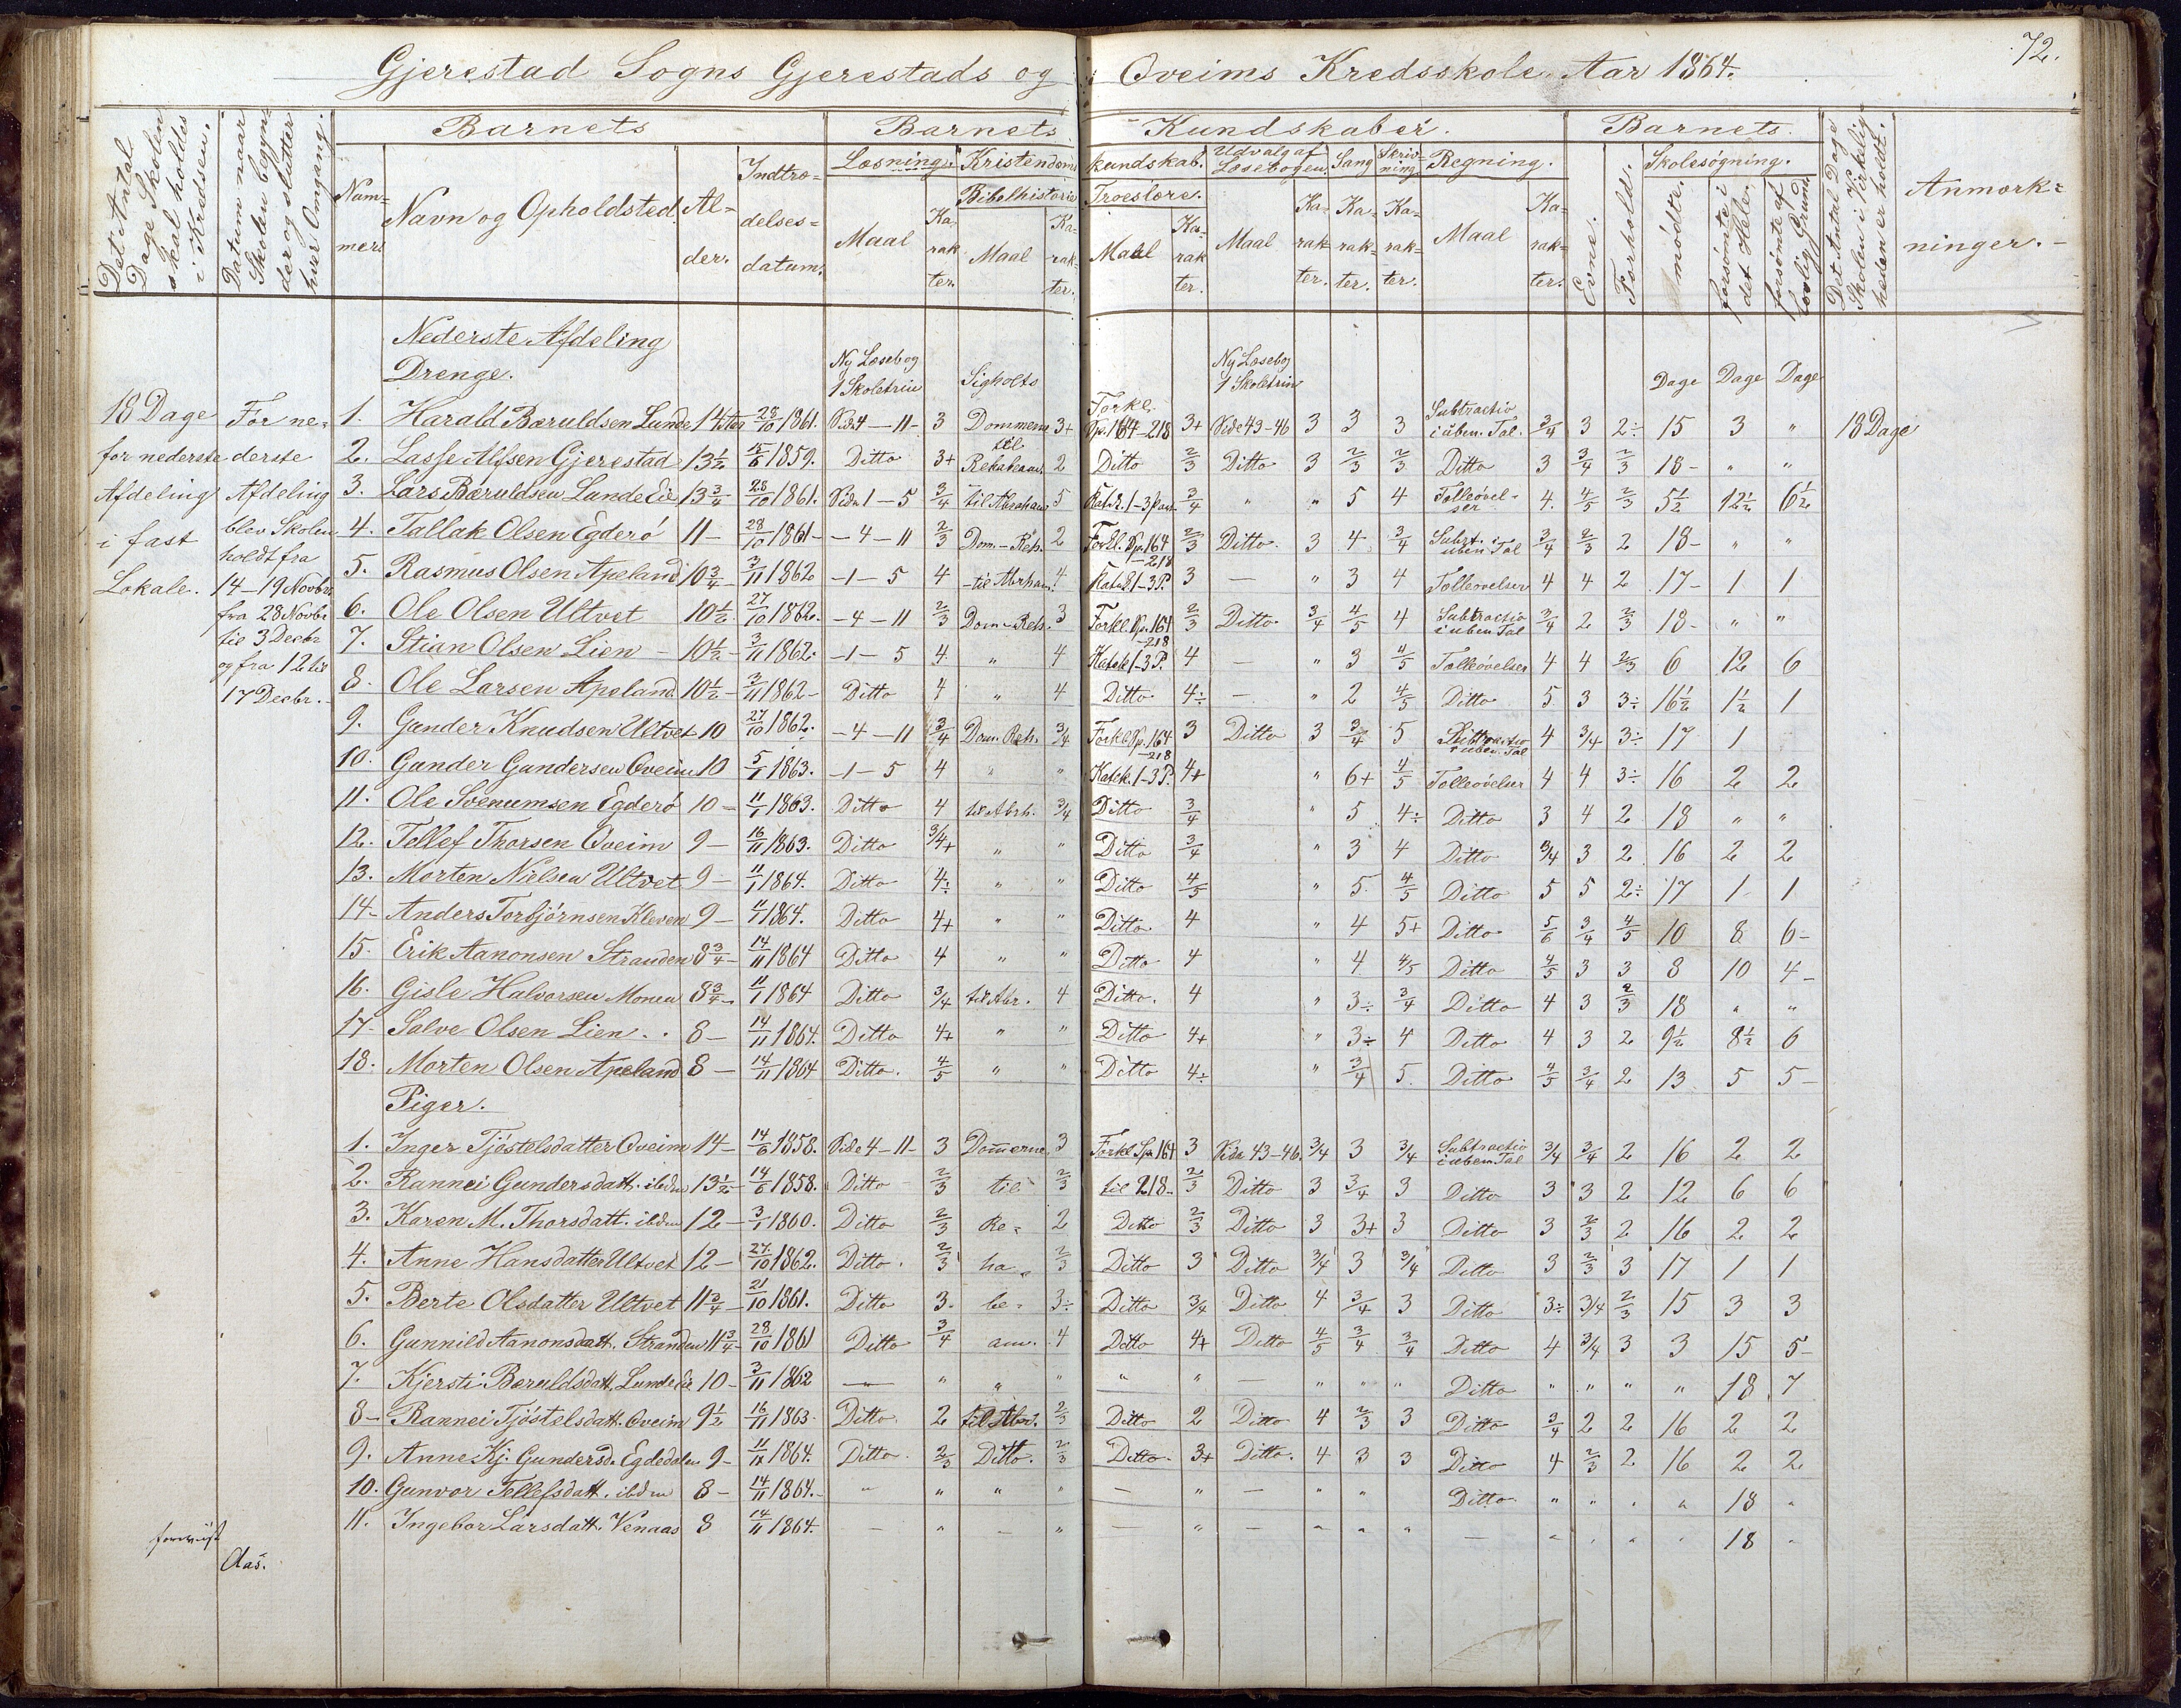 72.
Gjerestad Sogns Gjerestads og Oveims Kredsskole Aar 1864.
Det Antal Dage Skolen skal holdes i Kredsen.
Datum naar Skolen begynder og slutter hver Omgang.
Barnets
Barnets Kundskaber.
Barnets
Nummer
Navn og Opholdsted.
Alder.
Indtrædelsesdatum.
Læsning.
Kristendomskundskab.
Udvalg af Læsebogen.
Sang
Skrivning
Regning.
Evne.
Forhold.
Skolesøgning.
Det Antal Dage Skolen i Virkeligheden er holdt.
Anmærkninger.
Bibelhistorie
Troeslære.
Maal Karakter. Maal Karakter. Maal Karakter. Maal Karakter. Karakter. Karakter. Maal Karakter.
mødte.
forsømte i det Hele.
forsømte af lovlig Grund
Nederste Afdeling
Drenge.
Ny Læsebog 1 Skoletrin
Sigholts
Ny Læsebog 1 Skoletrin
Dage Dage Dage
18 Dage for nederste Afdeling i fast Lokale.
For nederste Afdeling blev Skolen holdt fra 14-19 Novbr. fra 28 Novbr til 3 Decbr og fra 12 til 17 Decbr.
1. Harald Bæruldsen Lunde 14 28/10 1861. Side 4-11- 3 Dommerne 3+ Forkl. Sp. 164-218 3+ Side 43-46 3 3 3 Subtractio i uben. Tal. 3/4 3 2÷ 15 3 " 18 Dage
2. Lasse Alfsen Gjerestad 13½ 15/6 1859. Ditto 3+ til Rehabeam 2 Ditto 2/3 Ditto 3 2/3 2/3 Ditto 3 3/4 2/3 18- " "
3. Lars Bæruldsen Lunde Eie 13¾ 28/10 1861. Side 1-5 3/4 til Abraham 5 Katek. 1-3 Part 3/4 " " 5 4 Tælleøvelser 4. 4/5 2/3 5½ 12½ 6½
4. Tallak Olsen Egderø 11- 28/10 1861- -4-11 2/3 Dom.-Reh. 2 Forkl. Sp. 164-218 2/3 Ditto. 3 4 3/4 Subt. i uben Tal 3/4 2/3 2 18- " "
5. Rasmus Olsen Apeland 10¾ 3/11 1862 -1-5 4 -til Abrham. 4 Katek 1-3 P. 3 - " 3 4 Tælleøvelser 4 4 2 17- 1 1
6. Ole Olsen Ultvet 10½ 27/10 1862. -4-11 2/3 Dom-Reh. 3 Forkl. Sp. 164-218 2/3 Ditto 3/4 4/5 4 Subtractio i uben Tal 3/4 2 2/3 18- " "
7. Stian Olsen Lien - 10½- 3/11 1862. -1-5 4. " 4 Katek 1-3 P. 4 - " 3 4/5 Tælleøvelser 4 4 2/3 6 12 6
8. Ole Larsen Apeland 10½- 3/11 1862- Ditto 4 " 4 Ditto 4÷ - " 2 4/5 Ditto 5 3 3÷ 16½ 1½ 1
9. Gunder Knudsen Ultvet 10 27/10 1862. -4-11 3/4 Dom. Reh. 3/4 Forkl. Sp. 164-218 3 Ditto 3 3/4 5 Subtractio i uben. Tal 4 3/4 3÷ 17 1
10. Gunder Gundersen Oveim 10 5/1 1863. -1-5 4 " " Katek. 1-3 P. 4+ " 6+ 4/5 Tælleøvelser 4 4 3÷ 16 2 2
11. Ole Svenumsen Egderø 10- 11/1 1863. Ditto 4 til Abrh. 3/4 Ditto 3/4 " 5 4÷ Ditto 3 4 2 18 " "
12. Tellef Thorsen Oveim 9- 16/11 1863. Ditto 3/4+ " " Ditto 3/4 " 3 4 Ditto 3/4 3 2 16 2 2
13. Morten Nielsen Ultvet 9- 11/1 1864. Ditto 4÷ " " Ditto 4/5 " 5 4/5 Ditto 5 5 2÷ 17 1 1
14- Anders Torbjørnsen Kleven 9- 11/1 1864. Ditto 4+ " " Ditto 4 " 4 5+ Ditto 5/6 3/4 4/5 10 8 6-
15. Erik Aanonsen Stranden 8¾- 14/11 1864 Ditto 4 " " Ditto 4 " 4 4/5 Ditto 4/5 3 3 8 10 4-
16. Gisle Halvorsen Monen 8¾- 11/1 1864 Ditto 3/4 til Abr. 4 Ditto. 4 " 3÷ 3/4 Ditto 4 3 2/3 18 " "
17- Salve Olsen Lien . . 8- 14/11 1864. Ditto 4+ " " Ditto 4+ " 3÷ 4 Ditto 4 3 2 9½ 8½ 6
18. Morten Olsen Apeland 8- 14/11 1864 Ditto. 4/5 " " Ditto 4÷ " 3/4 5. Ditto 4/5 3/4 2 13 5 5-
Piger.
1. Inger Tjøstelsdatter Oveim 14- 14/6 1858. Side 4-11- 3 Dommerne 3 Forkl Sp. 164 3 Side 43-46. 3/4 3 3/4 Subtractio i uben Tal 3/4 3/4 2 16 2 2
2. Rannei Gundersdatt. ibdm 13½- 14/6 1858. Ditto 2/3 til 2/3 til 218. 2/3 Ditto 3 3/4 3 Ditto 3 3 2 12 6 6
3. Karen M. Thorsdatt. ibdm 12- 3/1 1860. Ditto 2/3 Re- 2 Ditto 2/3 Ditto 3 3+ 3 Ditto 3 2/3 2 16 2 2
4. Anne Hansdatter Ultvet 12- 27/10 1862. Ditto. 2/3 ha- 2/3 Ditto 3 Ditto 3/4 3 3/4 Ditto 3 2/3 3 17 1 1
5. Berte Olsdatter Ultvet 11¾- 21/10 1861. Ditto 3. be- 3÷ Ditto 3/4 Ditto 4 3/4 3 Ditto 3÷ 3/4 2/3 15 3 3
6. Gunnild Aanonsdatt. Stranden 11¾- 28/10 1861 Ditto 3/4 am. 4 Ditto 4+ Ditto 4/5 3/4 3/4 Ditto 4 3/4 3 3 15 5-
7. Kjersti Bæruldsdatt. Lunde Eie 10- 3/11 1862 - " " " " " - " " " Ditto " " " " 18 7
8- Rannei Tjøstelsdatt. Oveim 9½ 16/11 1863- Ditto. 2 til Abr. 2/3 Ditto 2 Ditto 4 2/3 3 Ditto 3/4 2 2 16 2 2
9. Anne Kj. Gundersd. Egdedalen 9- 11/1 1864. Ditto. 2/3 Ditto. 2/3 Ditto. 3+ Ditto. 4 3 3 Ditto 4 2/3 2 16 2 2
10. Gunvor Tellefsdatt. ibdm 8- 14/11 1864.- - " " " - " - " " Ditto " " " " 18 "
11. Ingebor Larsdatt. Venaas 8 14/11 1864. - " - " - " - " " " - " " " " 18 "
Aas.